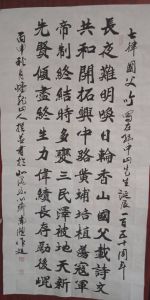 七律國父吟寫在孫中山先生誕辰一百五十周年
長夜難明喚日輪香山國父載詩文
共和開拓興中路黃埔培植蓋冠軍
帝制終結時多變三民澤被地天新
先賢傾盡終生力偉績長存勵後昆
丙申秋月